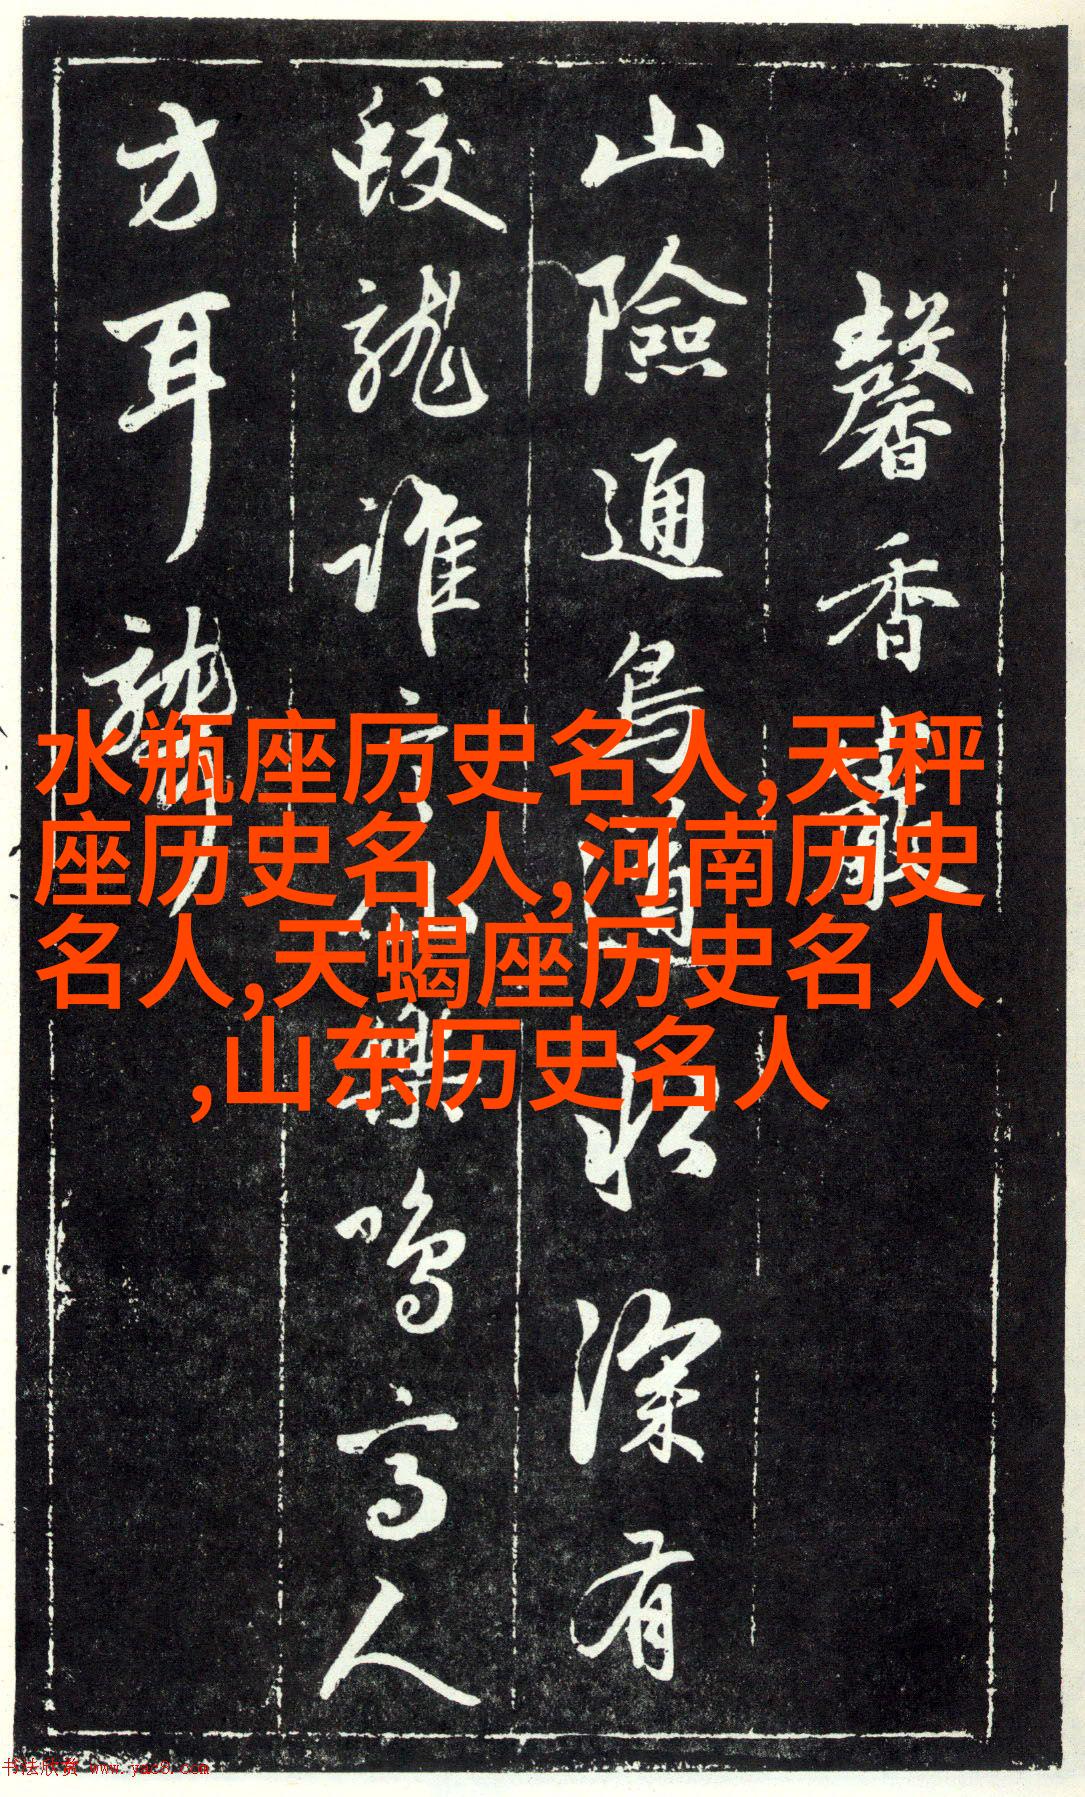 馨香藏
山險通鳥道水深有
蛟龍誰言不樂鳴高人
方耳聾
水瓶座历史名人,天秤
座历史名人,河南历史
名人,天蝎座历史名人
,山东历史名人
书法欣赏 www.yac8.com